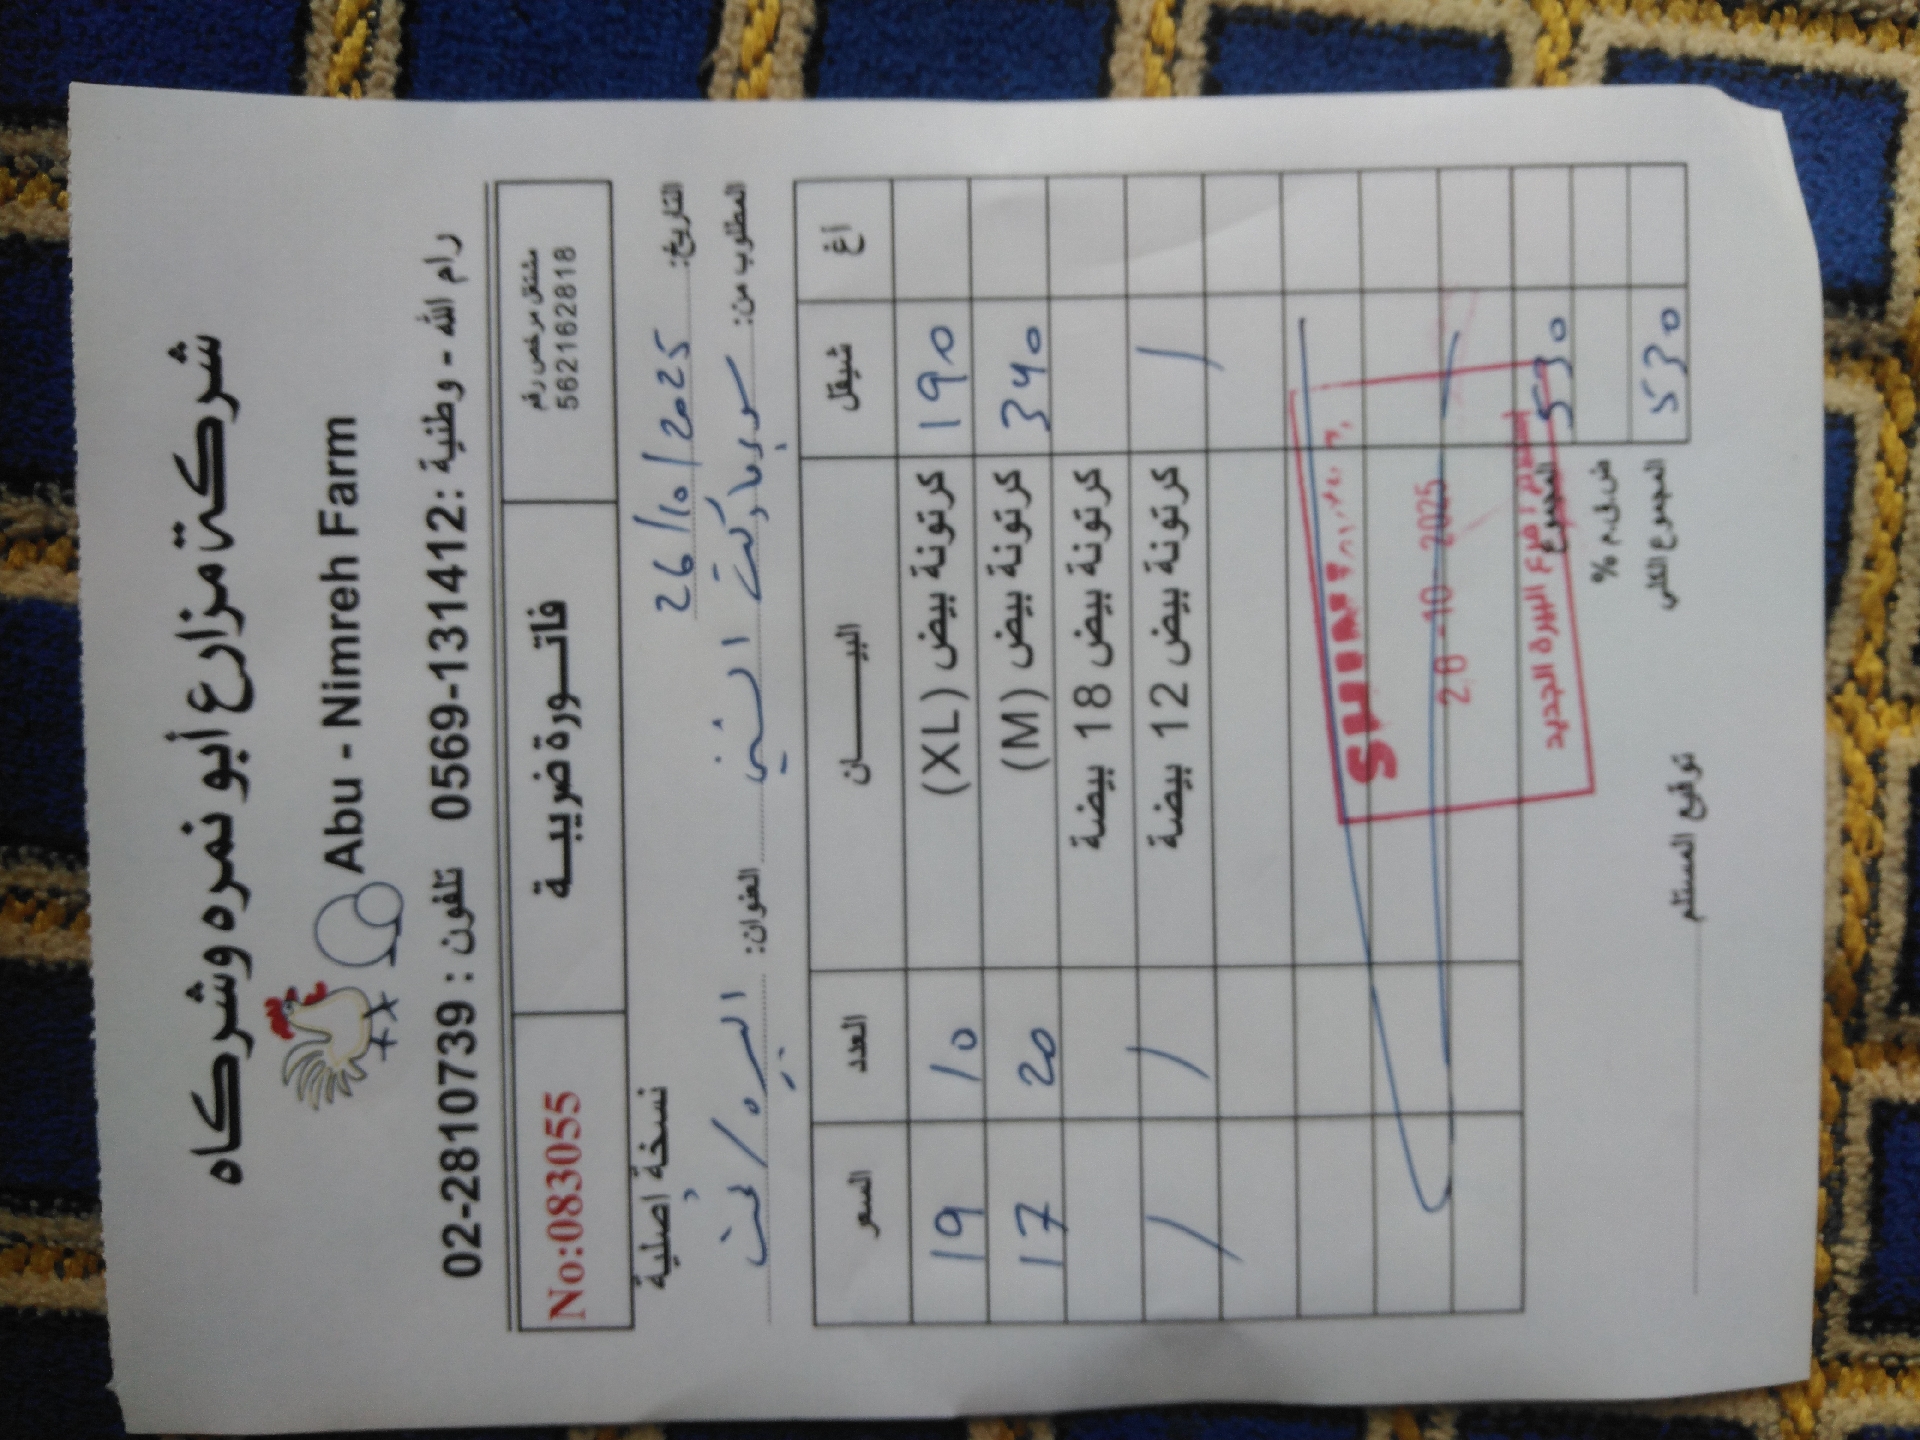 شركة مزارع أبو نمره وشركاه
Abu - Nimreh Farm
رام الله - وطنية : 0569-131412 تلفون : 02-2810739
مشتغل مرخص رقم
562162818
فاتـــورة ضريبـــة
No:083055
التاريخ: 26/10/2025 نسخة اصلية
المطلوب من: سوبرماركت الشني العنوان: البيره /
اغ شيقل البيـــــــان العدد السعر
190 كرتونة بيض (XL) 10 19
340 كرتونة بيض (M) 20 17
كرتونة بيض 18 بيضة
/ كرتونة بيض 12 بيضة / /
28-10-2025
فرع البيرة الجديد
530 المجموع
ض.ق.م %
530 المجموع الكلي
توقيع المستلم